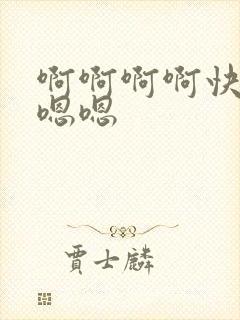 啊啊啊啊快
嗯嗯
賈士麟